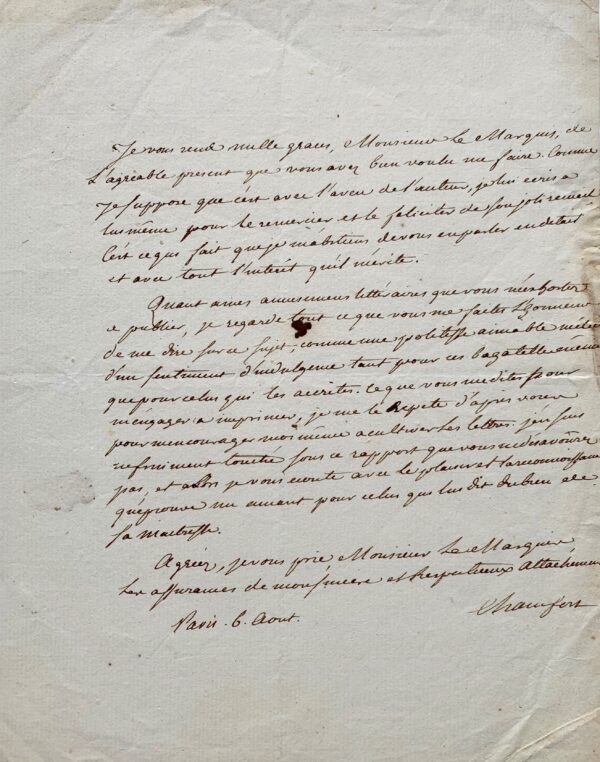 Je vous rends mille graces, Monsieur Le Marquis, de
L'agréable present que vous avez bien voulu me faire. Comme
Je suppose que c'est avec l'aveu de l'auteur, je lui ecris a
lui même pour le remercier et le feliciter de son joli recueil
C'est ce qui fait que je m'abstiens de vous en parler en detail
et avec tout l'intérêt qu'il mérite.
Quant a mes amusemens littéraires que vous m'exhortez
a publier, je regarde tout ce que vous me faites L'honneur
de me dire sur ce sujet, comme une politesse aimable mêlée
d'un sentiment d'indulgence tant pour ces bagatelles même
que pour celui qui les a ecrites. Ce que vous me dites pour
m'engager a imprimer, je me le repete d'apres vous
pour m'encourager moi même a cultiver Les lettres. j'en suis
infiniment touché sous ce rapport que vous ne desavouerez
pas, et alors je vous ecoute avec le plaisir et la reconnoissance
qu'éprouve un amant pour celui qui lui dit du bien de
sa maitresse.
Agréez, je vous prie Monsieur Le Marquis
Les assurances de mon sincere et Respectueux Attachement
Chamfort
Paris. 6. Aout.